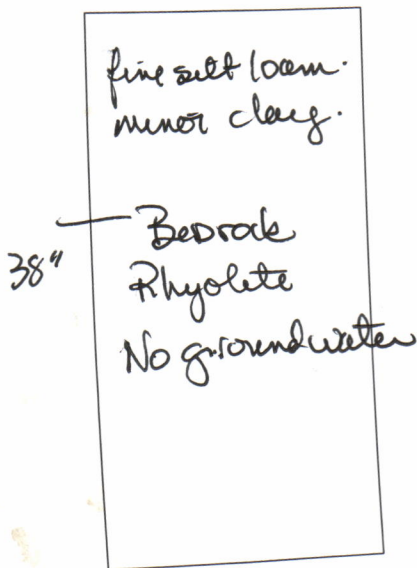 fine silt loam.
minor clay.
38"
Bedrock
Rhyolite
No groundwater